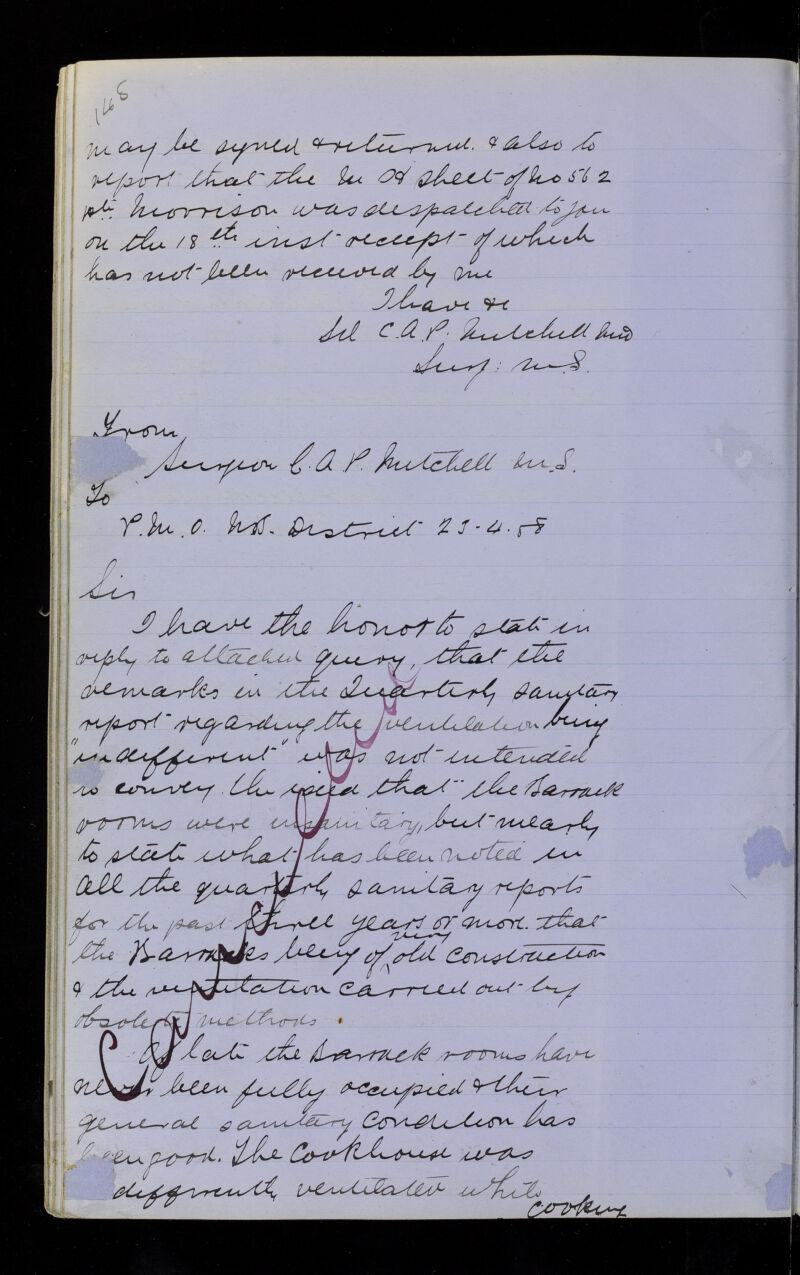 168
may be signed & returned. & also to
report that the M H sheet of No 562
Pte Morrison was despatched to you
on the 18th inst receipt of which
has not been received by me
I have &c
Sd C.A.P. Mitchell MD
Surg: M.S.
From
Surgeon C.A.P. Mitchell M.S.
To
P.M.O. N.B. District 23-4-88
Sir
I have the honor to state in
reply to attached query, that the
remarks in the Quarterly Sanitary
report regarding the ventilation being
"indifferent" was not intended
to convey the idea that the Barrack
rooms were insanitary, but mearly
to state what has been noted in
all the quarterly sanitary reports
for the past three years or more. that
the Barracks being of very old construction
& the ventilation carried out by
obsolete methods.
Of late the Barrack rooms have
never been fully occupied & their
general sanitary condition has
been good. The Cookhouse was
differently ventilated while
cooking
Cancelled